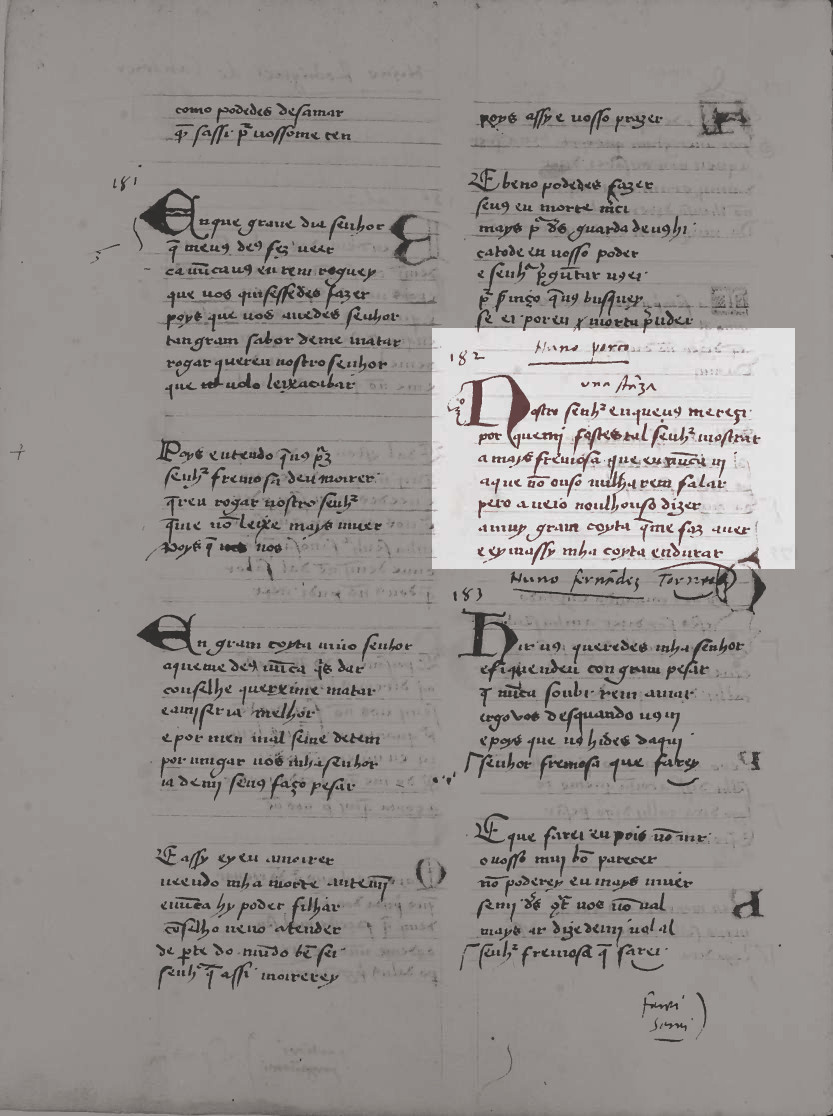 como podedes desamar
q̄ sassi p̄ uossome ten
181
Enque graue dia senhor
q̄ meuꝯ deꝯ fez ueer
ca nūcauꝯ eu rem roguey
que uos quisessedes fazer
poys que uos auedes senhor
tan gram sabor deme matar
rogar quereu nostro senhor
que uolo leixeacabar
Poys entendo q̄uꝯ pz̄
senhʳ fremosa deu moirer
q̄reu rogar nostro senhʳ
q̄me nō leixe mays uiuer
Poys q̄ uos
En gram coyta uiuo senhor
aqueme deꝯ nūca q̄s dar
conselhe quer xime matar
eami seria melhor
e por meu mal seme detem
por uingar uos mha senhor
ia demj seuꝯ faço pesar
E assy ey eu amoirer
ueendo mha morte antemj̄
enūca hy poder filhar
cōselho neno atender
de ꝑte do mūdo tē sei
senhʳ q̄ assi moirerey
poys assy e uosso prazer
E beno podedes fazer
seuꝯ eu morte mʳci
mays ꝑ dꝯ guarda deuꝯhi
catode en uosso poder
e senhʳ p̄gūtar uꝯei
ꝑ s̄uiço q̄uꝯ busquey
se ei poren ꝯ morta p̄nder
182 Nuno porco
una stāza
Nostro senhʳ enqueuꝯ mereçi
por quemj festestal senhʳ mostrar
a mays fremosa que eu nūca uj
aque nō ouso nulha rem falar
pero aueio noulhouso dizer
amuy gram coyta q̄me faz auer
e ey massy mha coyta endurar
Nuno fernādez Torneol
183
Hir uꝯ queredes mha senhor
efiquendeu con gram pesar
q̄ nūca soubi rem amar
ergo uos desquando uꝯ uj
epoys que uꝯ hides daqui
senhor fremosa que farey
E que farei eu pois nō uir
o uosso muj bō parecer
nō poderey eu mays uiuer
semj dꝯ 9t̄ uos nō ual
mays ar dizedemj ual al
senhʳ fremosa q̄ farei